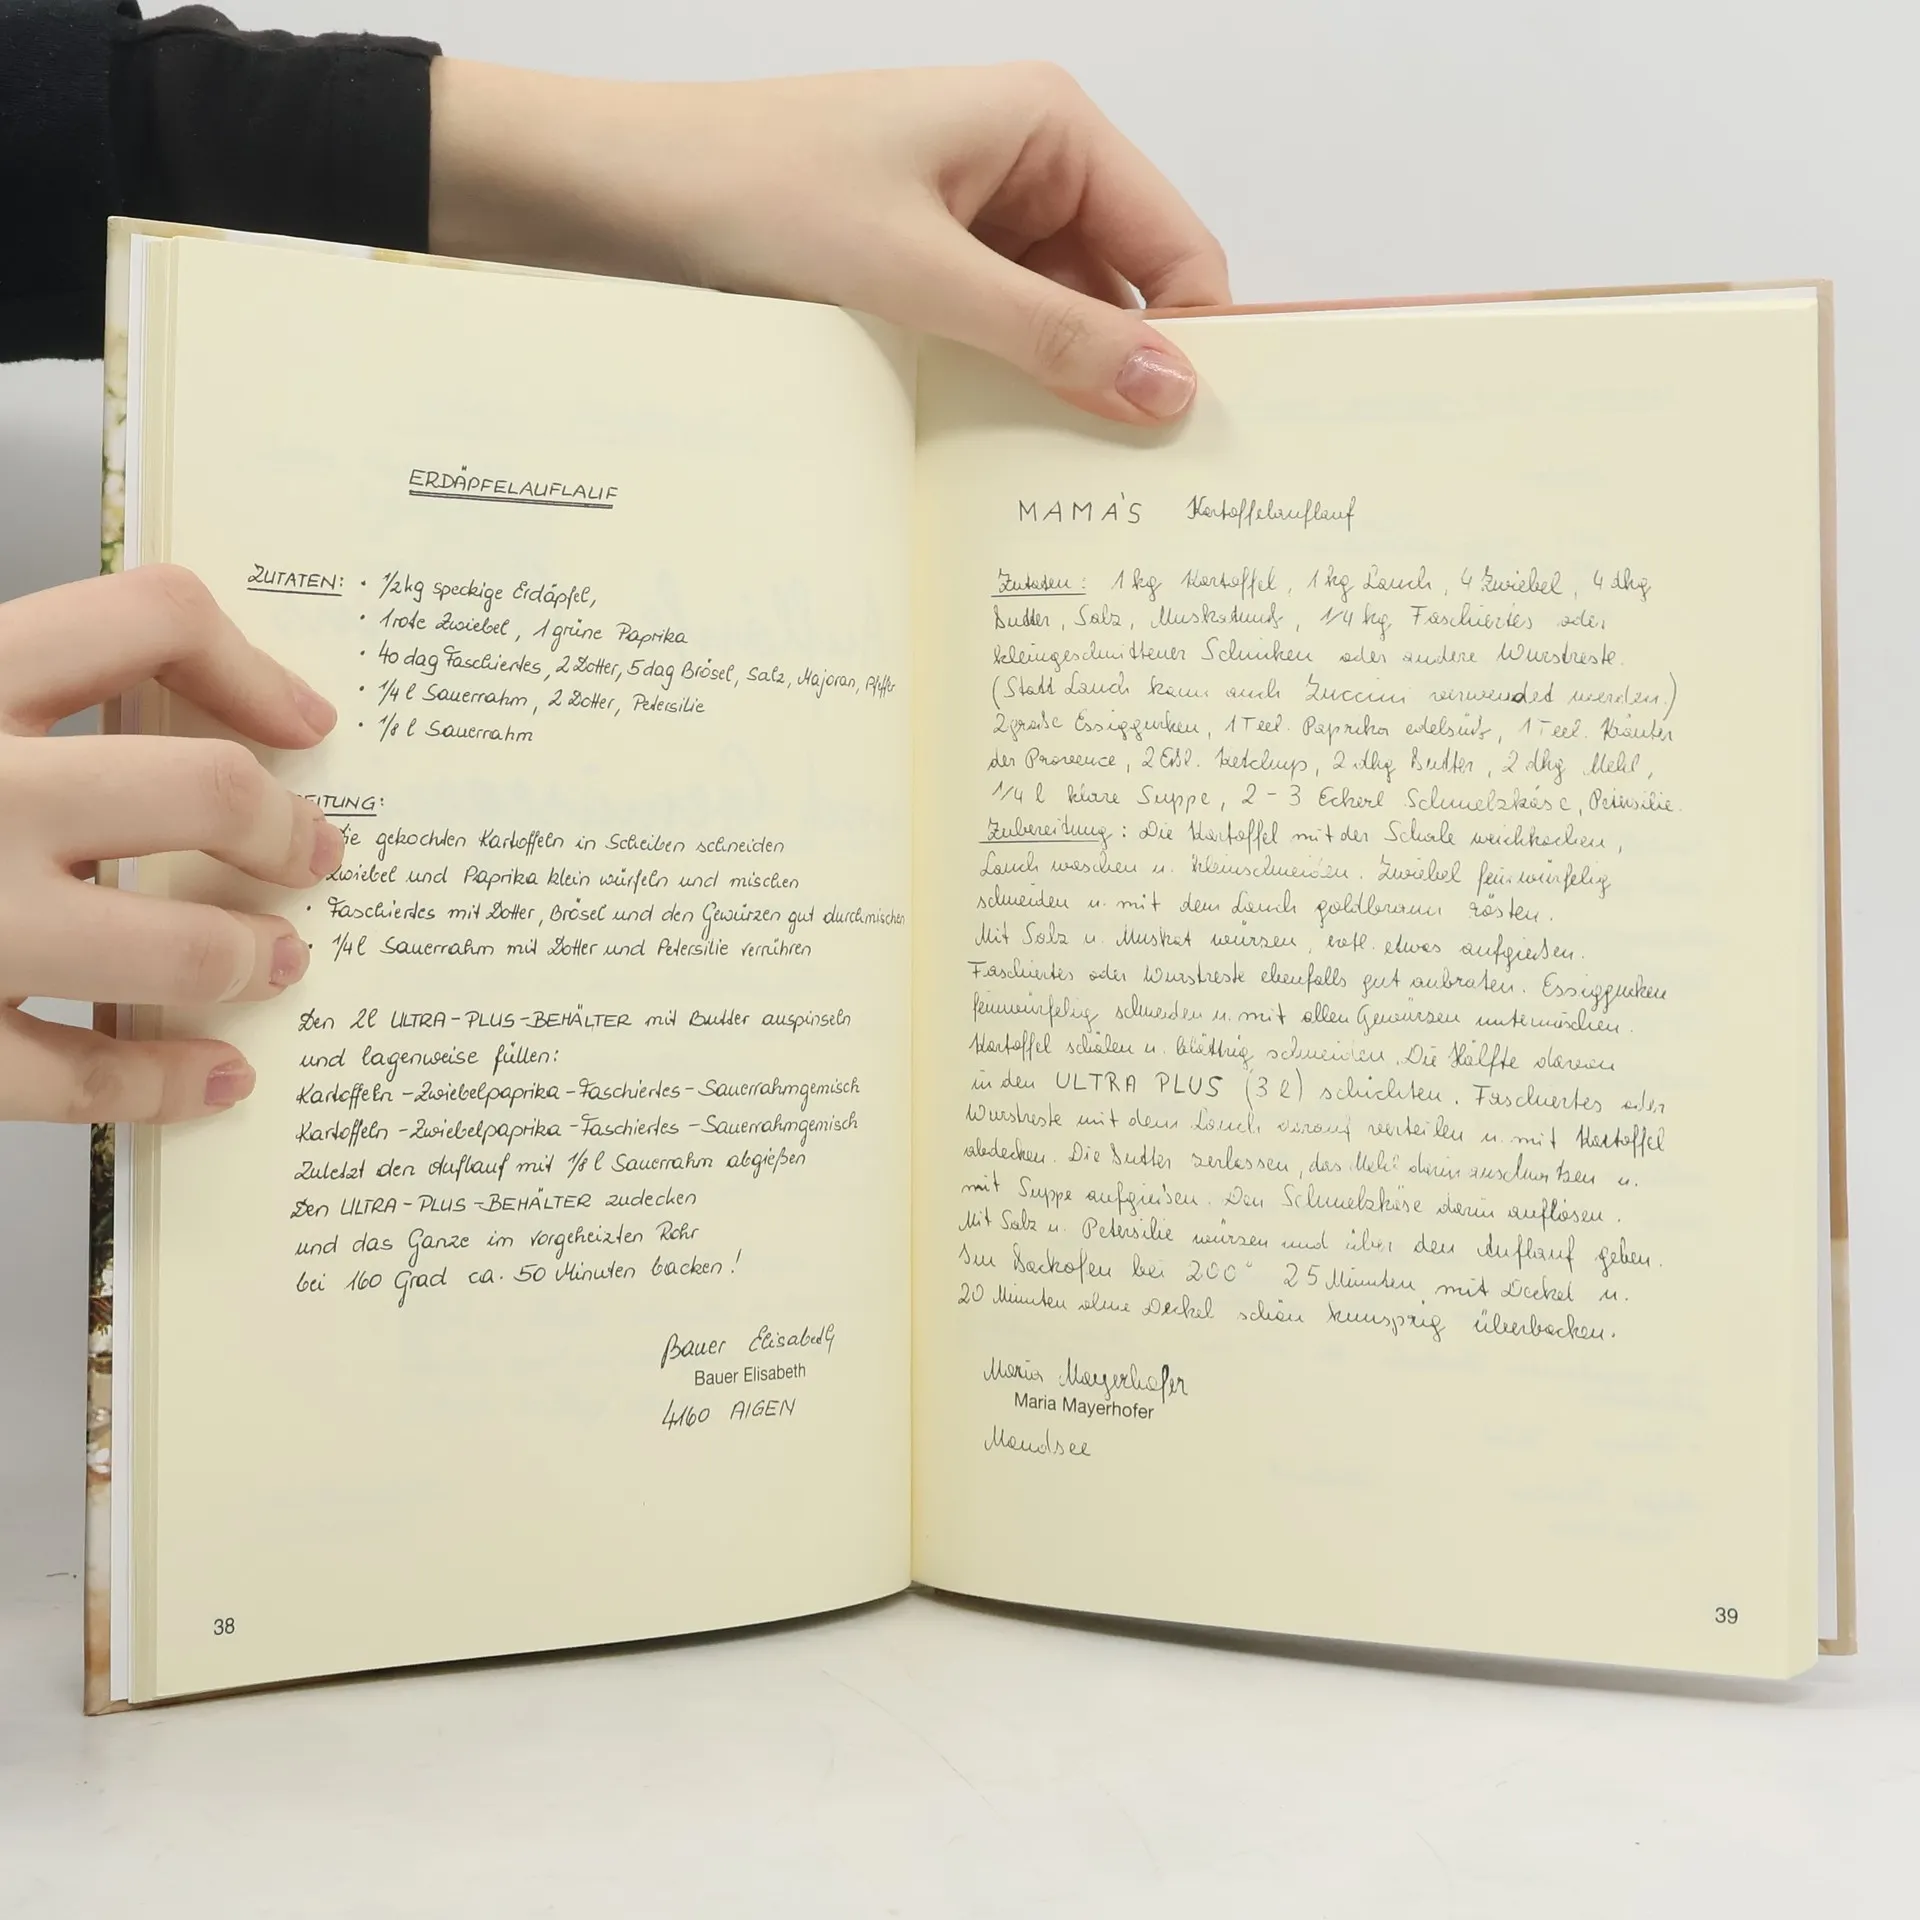 ERDÄPFELAUFLAUF
ZUTATEN: • 1/2 kg speckige Erdäpfel,
• 1 rote Zwiebel, 1 grüne Paprika
• 40 dag Faschiertes, 2 Dotter, 5 dag Brösel, Salz, Majoran, Pfeffer
• 1/4 l Sauerrahm, 2 Dotter, Petersilie
• 1/8 l Sauerrahm
EITUNG:
ie gekochten Kartoffeln in Scheiben schneiden
Zwiebel und Paprika klein würfeln und mischen
• Faschiertes mit Dotter, Brösel und den Gewürzen gut durchmischen
• 1/4 l Sauerrahm mit Dotter und Petersilie verrühren
Den 2l ULTRA-PLUS-BEHÄLTER mit Butter auspinseln
und lagenweise füllen:
Kartoffeln - Zwiebelpaprika - Faschiertes - Sauerrahmgemisch
Kartoffeln - Zwiebelpaprika - Faschiertes - Sauerrahmgemisch
Zuletzt den Auflauf mit 1/8 l Sauerrahm abgießen
Den ULTRA-PLUS-BEHÄLTER zudecken
und das Ganze im vorgeheizten Rohr
bei 160 Grad ca. 50 Minuten backen!
Bauer Elisabeth
Bauer Elisabeth
4160 AIGEN
38
MAMA'S Kartoffelauflauf
Zutaten: 1 kg Kartoffel, 1 kg Lauch, 4 Zwiebel, 4 dkg
Butter, Salz, Muskatnuß, 1/4 kg Faschiertes oder
kleingeschnittener Schinken oder andere Wurstreste.
(Statt Lauch kann auch Zuccini verwendet werden.)
2 große Essiggurken, 1 Teel. Paprika edelsüß, 1 Teel. Kräuter
der Provence, 2 Eßl. Ketchup, 2 dkg Butter, 2 dkg Mehl,
1/4 l klare Suppe, 2 - 3 Eckerl Schmelzkäse, Petersilie.
Zubereitung: Die Kartoffel mit der Schale weichkochen,
Lauch waschen u. kleinschneiden. Zwiebel feinwürfelig
schneiden u. mit dem Lauch goldbraun rösten.
Mit Salz u. Muskat würzen, evtl. etwas aufgießen.
Faschiertes oder Wurstreste ebenfalls gut anbraten. Essiggurken
feinwürfelig schneiden u. mit allen Gewürzen untermischen.
Kartoffel schälen u. blättrig schneiden. Die Hälfte davon
in den ULTRA PLUS (3 l) schichten. Faschiertes oder
Wurstreste mit dem Lauch darauf verteilen u. mit Kartoffel
abdecken. Die Butter zerlassen, das Mehl darin anschwitzen u.
mit Suppe aufgießen. Den Schmelzkäse darin auflösen.
Mit Salz u. Petersilie würzen und über den Auflauf geben.
Im Backofen bei 200° 25 Minuten mit Deckel u.
20 Minuten ohne Deckel schön knusprig überbacken.
Maria Mayerhofer
Maria Mayerhofer
Mondsee
39